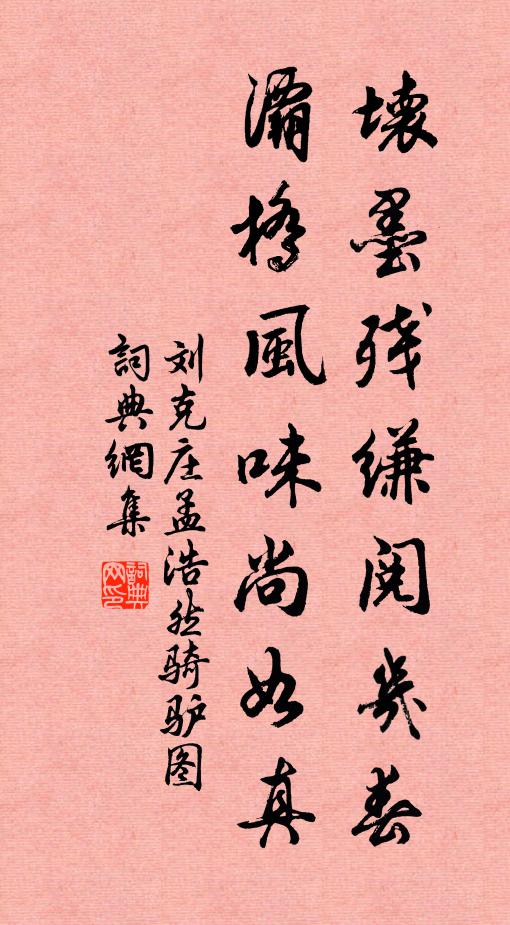 壊墨残縑閱幾春
灞橋風味尚如真
刘克庄孟浩然骑驴图
詞典網集
詞典网印